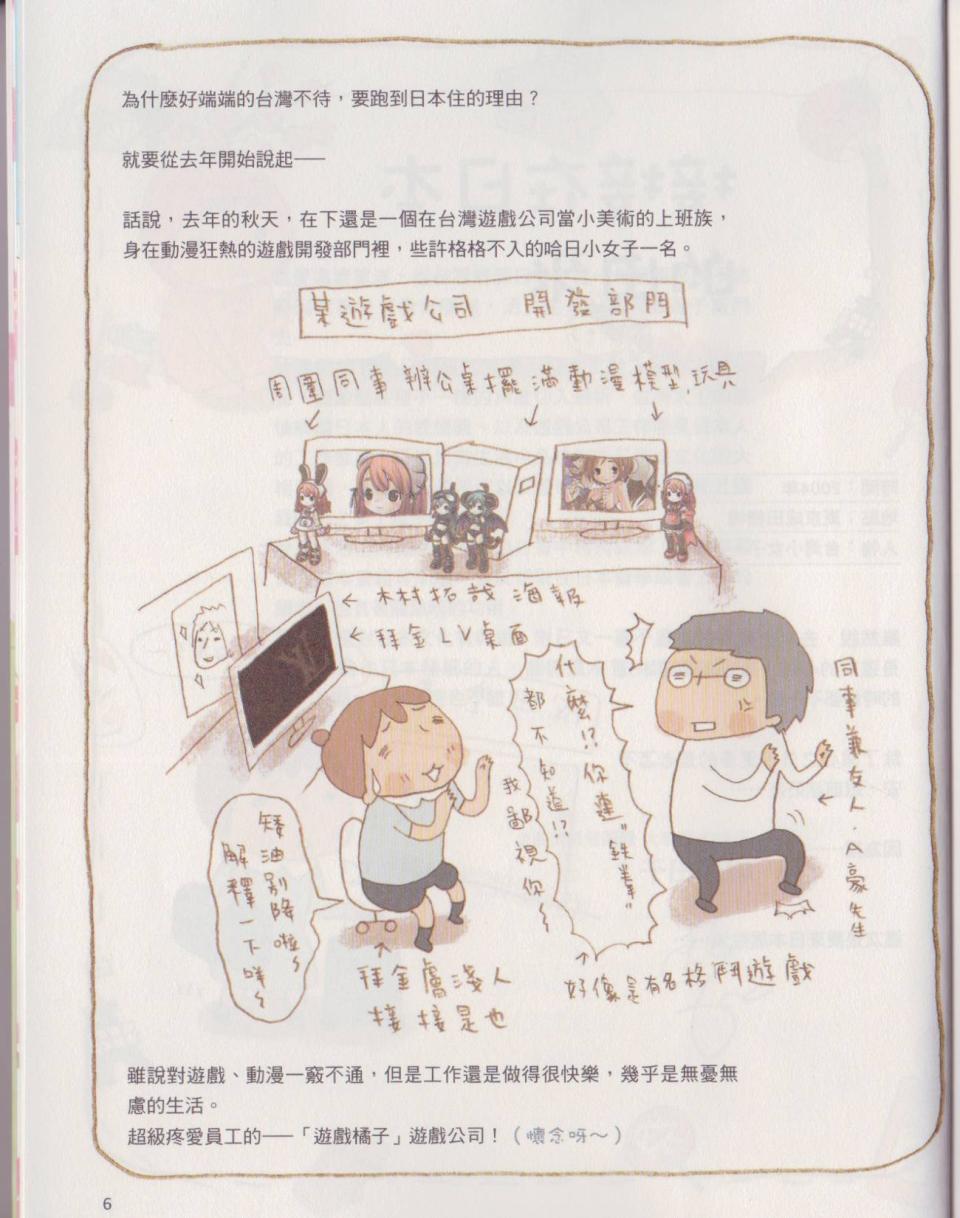 為什麼好端端的台灣不待，要跑到日本住的理由？
就要從去年開始說起──
話說，去年的秋天，在下還是一個在台灣遊戲公司當小美術的上班族，
身在動漫狂熱的遊戲開發部門裡，些許格格不入的哈日小女子一名。
某遊戲公司 開發部門
周圍同事辦公桌擺滿動漫模型玩具
←木村拓哉海報
←拜金LV桌面
什麼!?你連"鉄拳"
都不知道!?
我鄙視你~
同事兼友人．A豪先生
矮油別降啦~
解釋一下咩~
拜金膚淺人
接接是也
好像是有名格鬥遊戲
雖說對遊戲、動漫一竅不通，但是工作還是做得很快樂，幾乎是無憂無
慮的生活。
超級疼愛員工的──「遊戲橘子」遊戲公司！（懷念呀～）
6